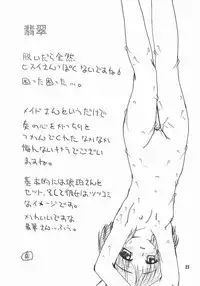 翡翠
脱いだら全然
ヒスイさんっぽくないですね!
困った困った…。
メイドさんというだけで
奴の心をがっちりと
つかんでくれた なかなか
侮れないキャラでござい
ますね。
基本的には琥珀さんと
セット、そして彼女はツッコミ
なイメージです。が
かわいいですな
翡翠さんっぷり。